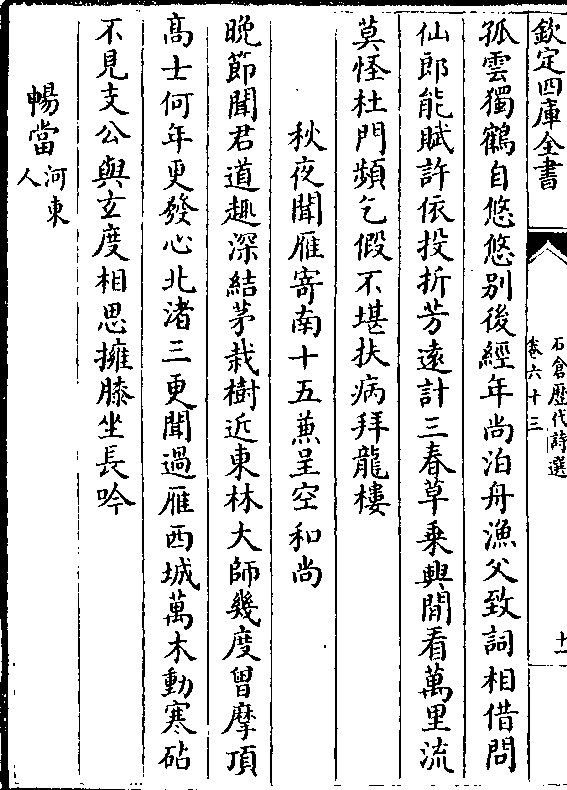 欽定四庫全書
石倉歷代詩選
卷六十三
十一
孤雲獨鶴自悠悠别後經年尚泊舟漁父致詞相借問
仙郎能賦許依投折芳遠計三春草乗興閒看萬里流
莫怪杜門頻乞假不堪扶病拜龍樓
秋夜聞雁寄南十五兼呈空和尚
晚節聞君道趣深結茅栽樹近東林大師幾度曽摩頂
高士何年更發心北渚三更聞過雁西城萬木動寒砧
不見支公與玄度相思擁膝坐長吟
暢當河東
人